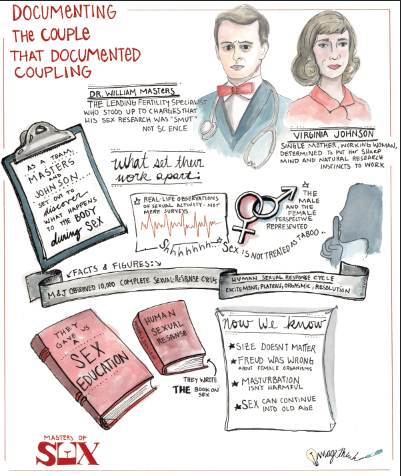 DOCUMENTING
THE COUPLE
THAT DOCUMENTED
COUPLING
DR. WILLIAM MASTERS
THE LEADING FERTILITY SPECIALIST
WHO STOOD UP TO CHARGES THAT
HIS SEX RESEARCH WAS "SMUT"
NOT SCIENCE
VIRGINIA JOHNSON
SINGLE MOTHER, WORKING WOMAN,
DETERMINED TO PUT HER SHARP
MIND AND NATURAL RESEARCH
INSTINCTS TO WORK
AS A TEAM,
MASTERS
AND
JOHNSON...
SET OUT TO
discover
WHAT HAPPENS
TO THE BODY
during SEX
what set their
work apart:
★ REAL-LIFE OBSERVATIONS
OF SEXUAL ACTIVITY - NOT
MERE SURVEYS
★ THE MALE
AND THE
FEMALE
PERSPECTIVE
REPRESENTED
Shhhhhh...
★ SEX IS NOT TREATED AS TABOO..
FACTS & FIGURES:
M&J OBSERVED 10,000 COMPLETE SEXUAL RESPONSE CYCLES
HUMAN SEXUAL RESPONSE CYCLE
PLATEAU, ORGASMIC, RESOLUTION
THEY
GAVE US
SEX
EDUCATION
HUMAN
SEXUAL
THEY WROTE
THE BOOK ON
SEX
Now We know
★ SIZE DOESN'T MATTER
★ FREUD WAS WRONG
ABOUT FEMALE ORGASMS
★ MASTURBATION
ISN'T HARMFUL
★ SEX CAN CONTINUE
INTO OLD AGE
MASTERS OF
SEX
ImageThink